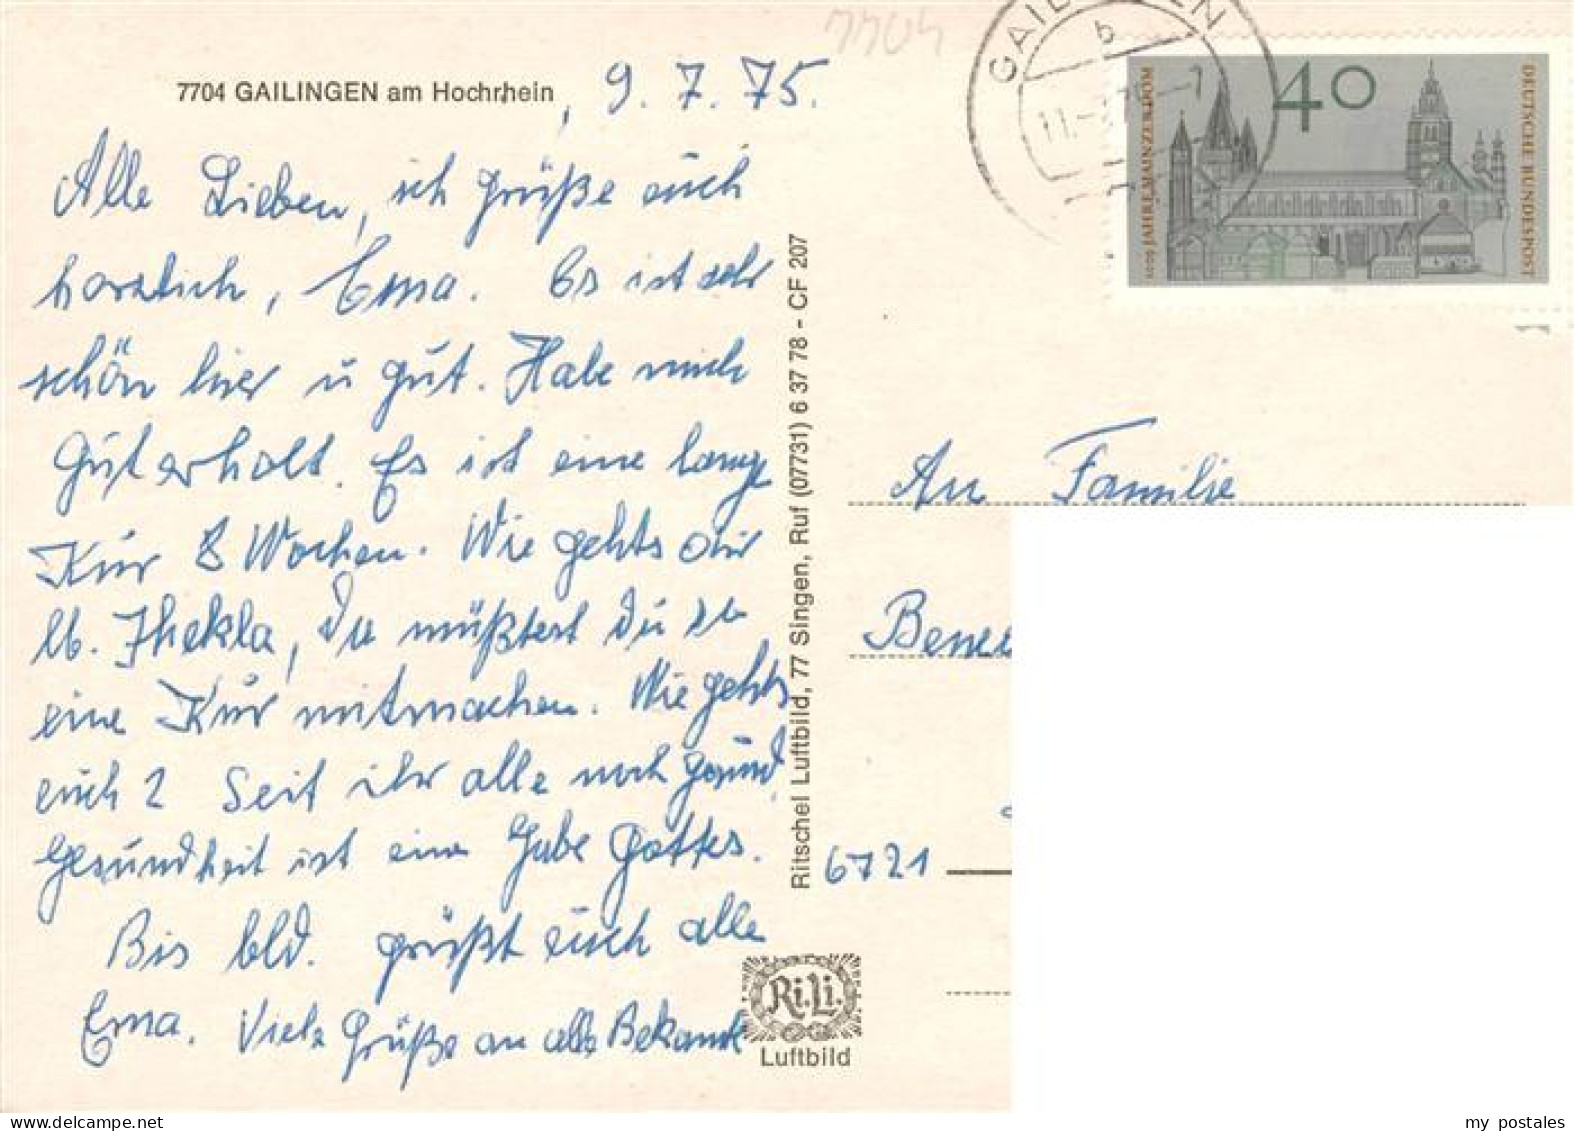 7704
7704 GAILINGEN am Hochrhein, 9. 7. 75.
Alle Lieben, ich grüße euch
herzlich, Erna. Es ist sehr
schön hier u gut. Habe mich
gut erholt. Es ist eine lange
Kur 8 Wochen. Wie gehts dir
lb. Thekla, Du müßtest Du
eine Kur mitmachen. Wie gehts
euch? Seit ihr alle noch gesund,
Gesundheit ist eine Gabe Gottes.
Bis bld. grüßt euch alle
Erna. Viele Grüße an alle Bekannte
Ritschel Luftbild, 77 Singen, Ruf (07731) 6 37 78 - CF 207
Ri.Li.
Luftbild
GAILINGEN
b
11.
40
1000 JAHRE MAINZER DOM
DEUTSCHE BUNDESPOST
An Familie
6721
my postales